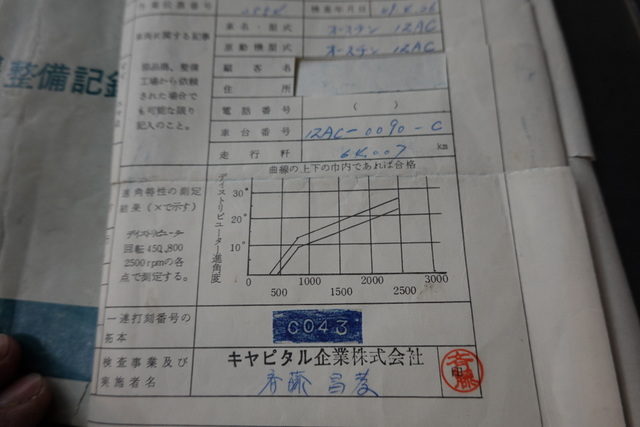 整備記録
作業伝票番号
検査年月日
車名・型式 オースチン 12AC
車両に関する記事
原動機型式 オースチン 12AC
部品商、整備
工場から依頼
された場合で
も可能な限り
記入のこと。
顧客名
住所
電話番号 ( )
車台番号 12AC-0090-C
走行粁 64,007 km
曲線の上下の巾内であれば合格
進角特性の測定
結果(×で示す)
ディストリビューター
回転450、800
2500rpmの各
点で測定する。
ディストリビューター進角度
30°
20°
10°
0 1000 2000 3000
500 1500 2500
一連打刻番号の
拓本
0043
検査事業及び
実施者名
キャピタル企業株式会社
斉藤
斉藤 印